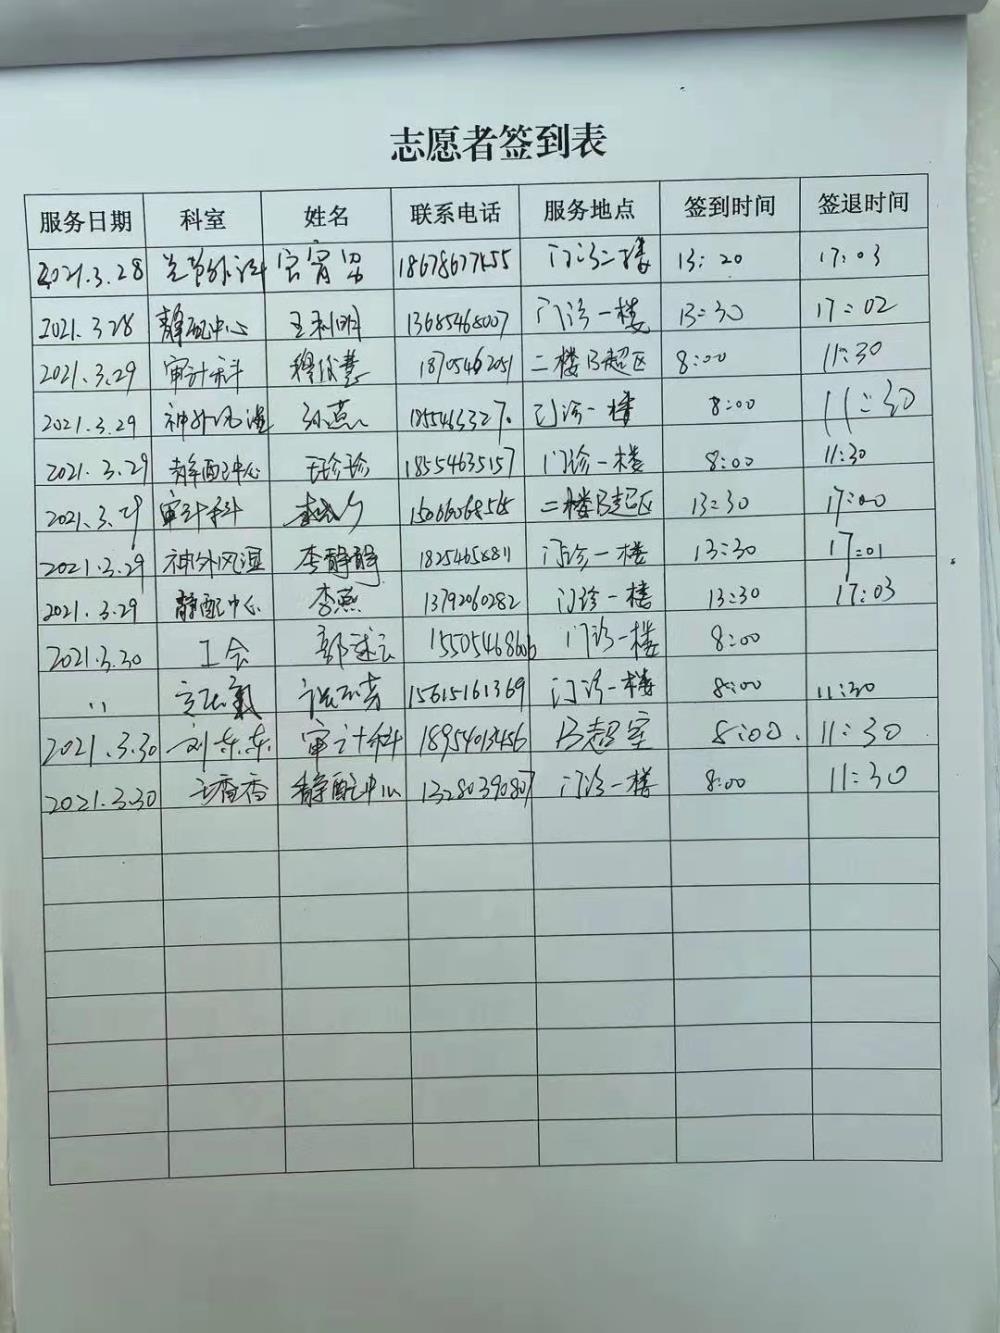 志愿者签到表
服务日期 科室 姓名 联系电话 服务地点 签到时间 签退时间
2021.3.28 18678677555 门诊二楼 13:20 17:03
2021.3.28 静配中心 王利明 13685468007 门诊一楼 13:30 17:02
2021.3.29 审计科 18705462051 二楼B超区 8:00 11:30
2021.3.29 神外风湿 孙燕 门诊一楼 8:00 11:30
2021.3.29 静配中心 王珍珍 18554635157 门诊一楼 8:00 11:30
2021.3.29 审计科 二楼B超区 13:30 17:00
2021.3.29 神外风湿 李静静 门诊一楼 13:30 17:01
2021.3.29 静配中心 李燕 13792060282 门诊一楼 13:30 17:03
2021.3.30 工会 门诊一楼 8:00
" 15615161369 门诊一楼 8:00 11:30
2021.3.30 刘东东 审计科 18954013456 B超室 8:00. 11:30
2021.3.30 王香香 静配中心 13280390807 门诊一楼 8:00 11:30